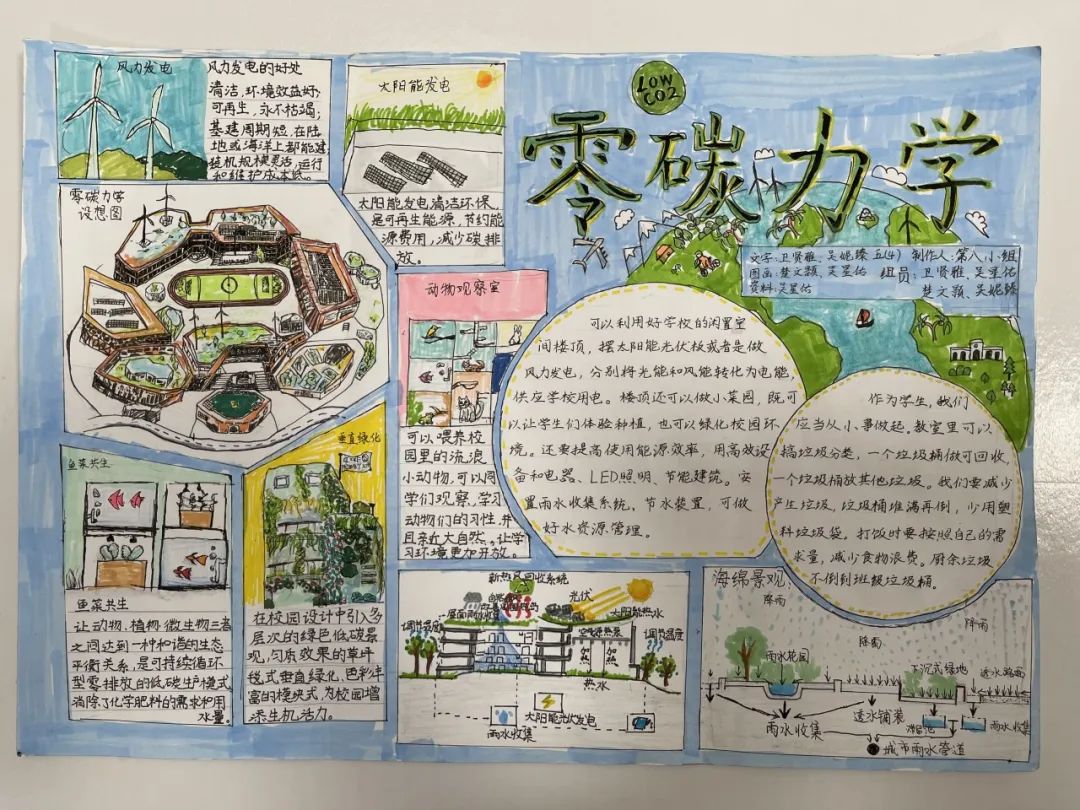 LOW
CO2
零碳力学
文字:卫贤雅、吴妮臻 五(4) 制作人:第八小组
图画:楚文颢、吴星佑 组员:卫贤雅、吴星佑
资料:吴星佑 楚文颢、吴妮臻
风力发电
风力发电的好处
清洁,环境效益好;
可再生,永不枯竭;
基建周期短,在陆
地或海洋上都能建
装机规模灵活,运行
和维护成本低。
太阳能发电
太阳能发电清洁环保,
是可再生能源,节约能
源费用,减少碳排
放。
零碳力学
设想图
动物观察室
可以喂养校
园里的流浪
小动物,可以同
学们观察,学习
动物们的习性,并
且亲近大自然。让学
习环境更加开放。
可以利用好学校的闲置室
间楼顶,摆太阳能光伏板或者是做
风力发电,分别将光能和风能转化为电能,
供应学校用电。楼顶还可以做小菜园,既可
以让学生们体验种植,也可以绿化校园环
境。还要提高使用能源效率,用高效设
备和电器、LED照明、节能建筑。安
置雨水收集系统、节水装置,可做
好水资源管理。
作为学生,我们
应当从小事做起。教室里可以
搞垃圾分类,一个垃圾桶做可回收,
一个垃圾桶放其他垃圾。我们要减少
产生垃圾,垃圾桶堆满再倒,少用塑
料垃圾袋,打饭时要按照自己的需
求量,减少食物浪费。厨余垃圾
不倒到班级垃圾桶。
鱼菜共生
鱼菜共生
让动物、植物、微生物三者
之间达到一种和谐的生态
平衡关系,是可持续循环
型零排放的低碳生产模式,
消除了化学肥料的需求和用
水量。
垂直绿化
在校园设计中引入多
层次的绿色低碳景
观,匀质效果的草坪
毯式垂直绿化,色彩丰
富的模块式,为校园增
添生机活力。
新热风回收系统
屋面雨水收集
光伏
太阳能热水
调节温度
空气源热泵
调节温度
加热
加热
热水
太阳能光伏发电
雨水收集
海绵景观
降雨
降雨
降雨
雨水花园
下沉式绿地
透水路面
雨水收集
透水铺装
滞留池
雨水收集
城市雨水管道